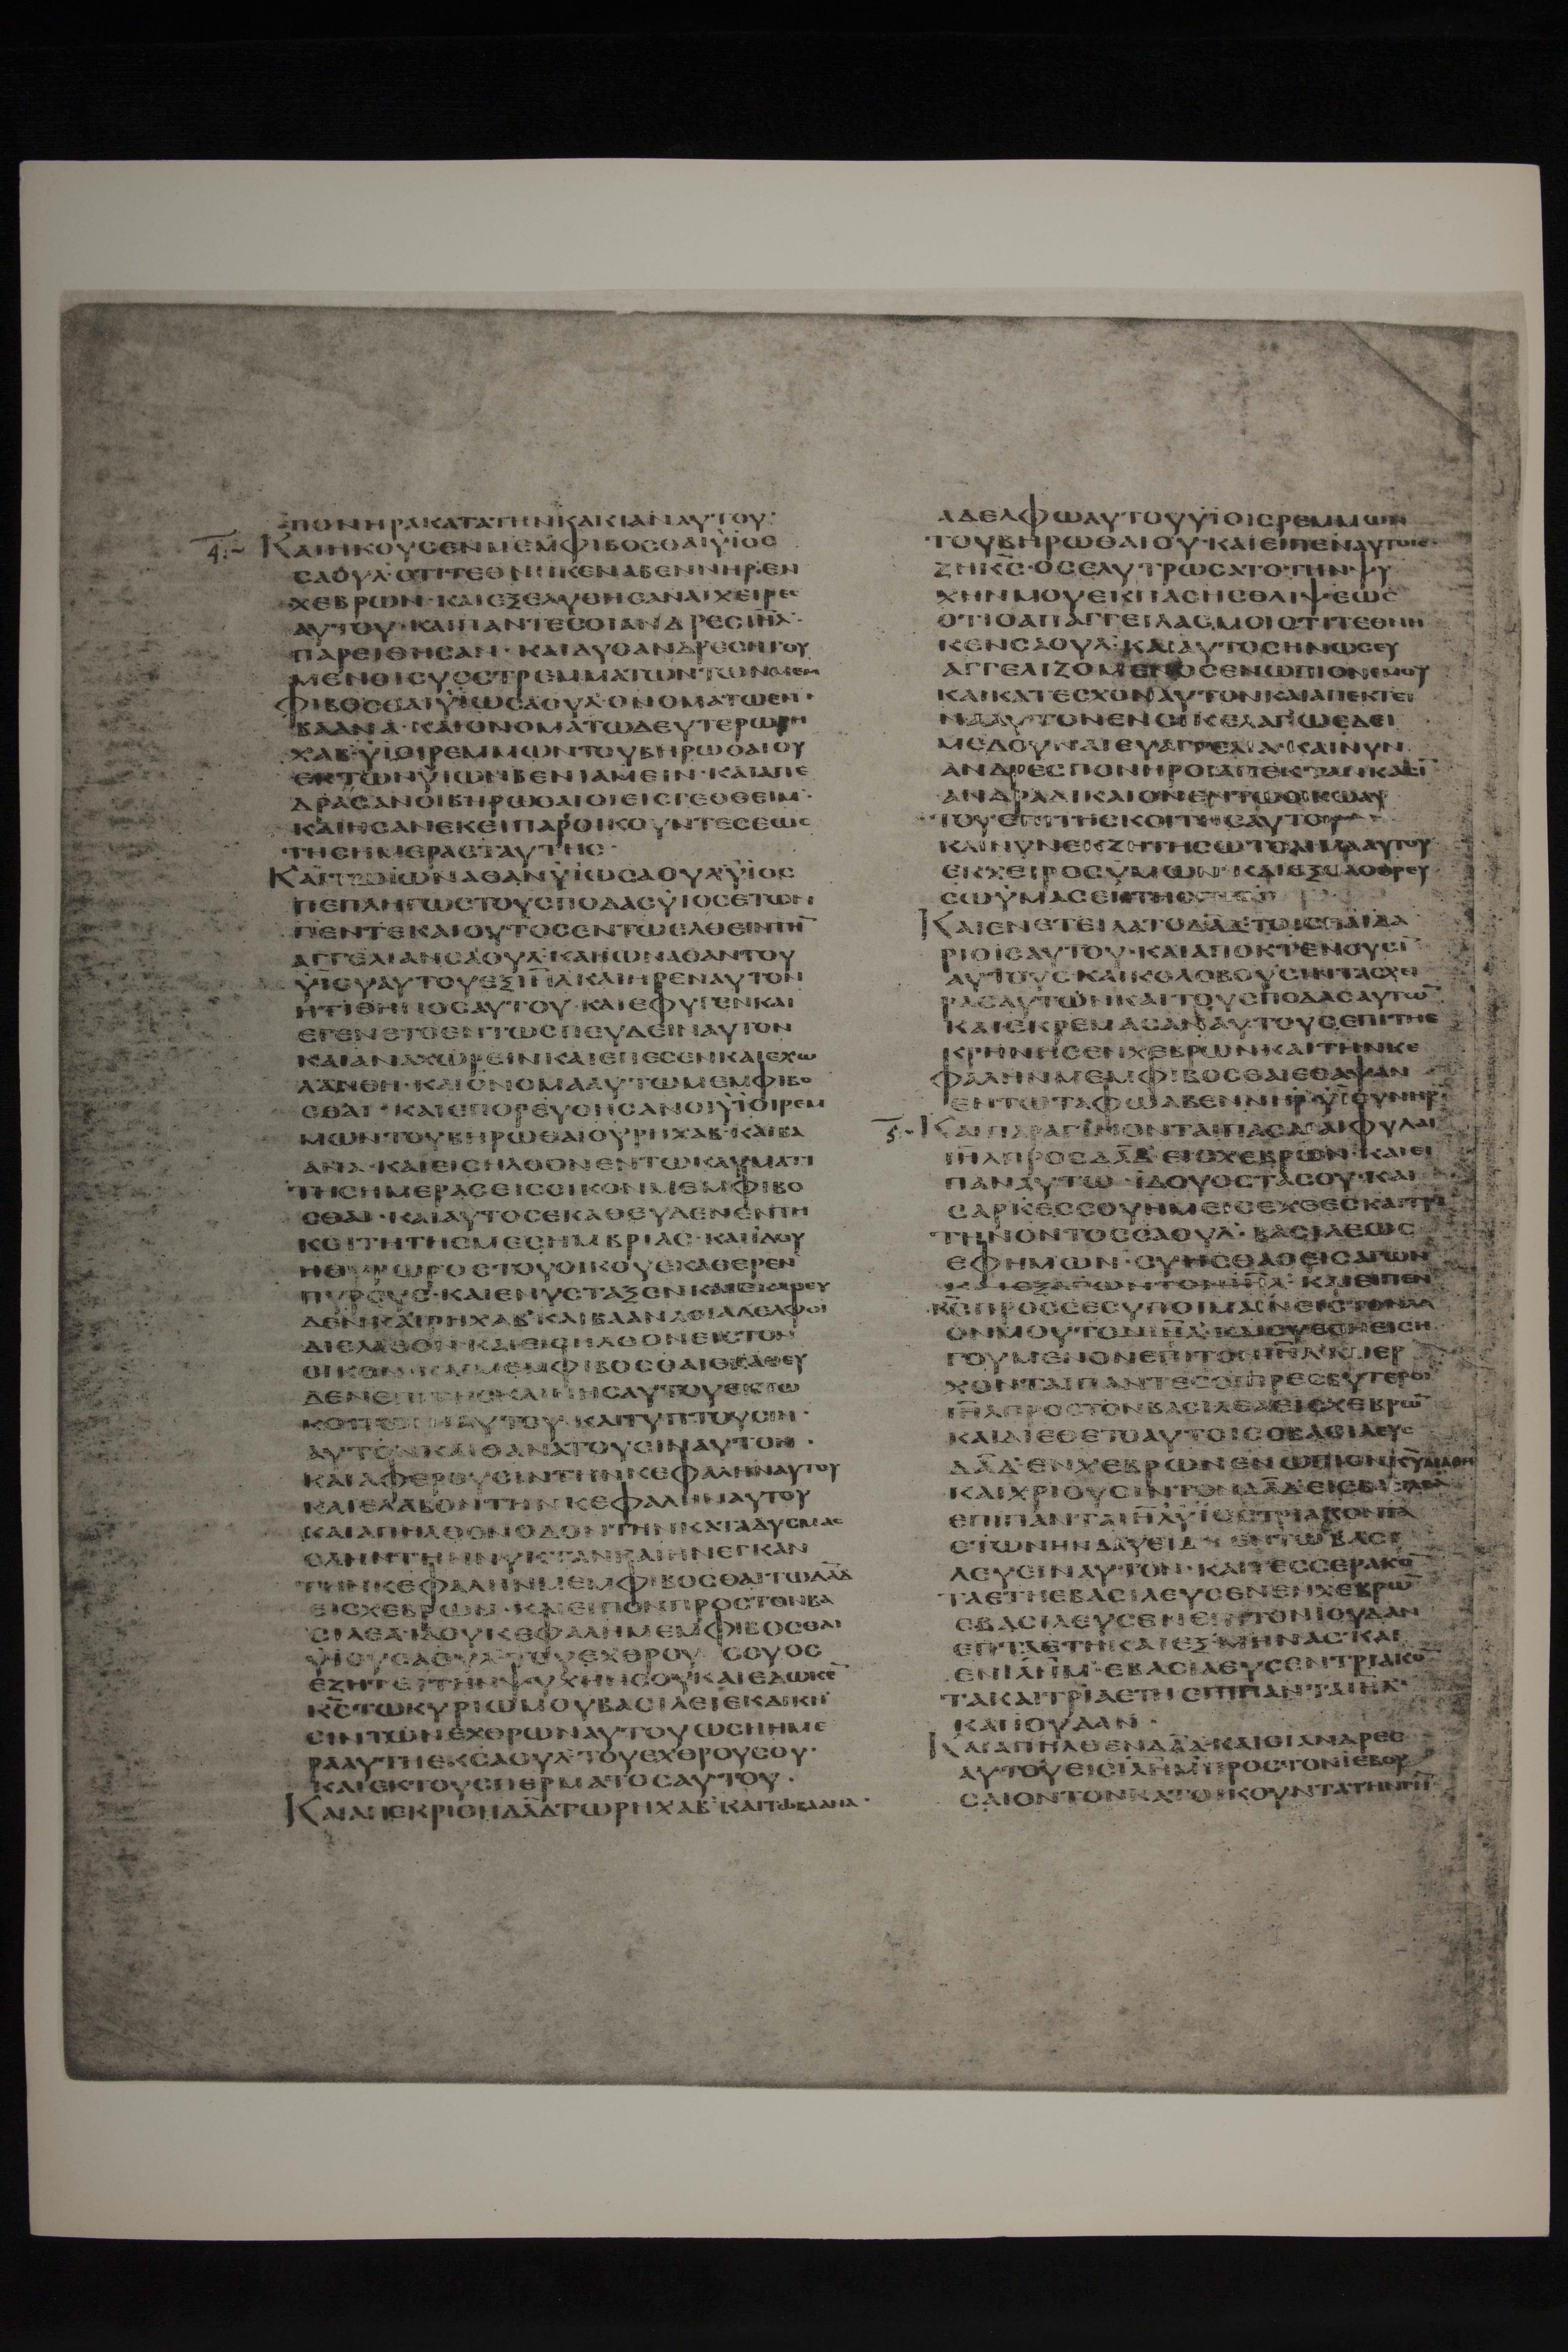 ΠΟΝΗΡΑΚΑΤΑΤΗΝΚΑΚΙΑΝΑΥΤΟΥ·
4:~ ΚΑΙΗΚΟΥϹΕΝΜΕΜΦΙΒΟϹΘΑΙΥΪΟϹ
ϹΑΟΥΛ·ΟΤΙΤΕΘΝΗΚΕΝΑΒΕΝΝΗΡ·ΕΝ
ΧΕΒΡΩΝ·ΚΑΙΕΞΕΛΥΘΗϹΑΝΑΙΧΕΙΡΕϹ
ΑΥΤΟΥ·ΚΑΙΠΑΝΤΕϹΟΙΑΝΔΡΕϹΙΗΛ·
ΠΑΡΕΙΘΗϹΑΝ·ΚΑΙΔΥΟΑΝΔΡΕϹΗΓΟΥ
ΜΕΝΟΙϹΥϹϹΤΡΕΜΜΑΤΩΝΤΩΝΜΕΜ
ΦΙΒΟϹΘΑΙΥΪΩϹΑΟΥΛ·ΟΝΟΜΑΤΩΕΝΙ·
ΒΑΑΝΑ·ΚΑΙΟΝΟΜΑΤΩΔΕΥΤΕΡΩΡΗ
ΧΑΒ·ΥΪΟΙΡΕΜΜΩΝΤΟΥΒΗΡΩΘΑΙΟΥ
ΕΚΤΩΝΥΪΩΝΒΕΝΙΑΜΕΙΝ·ΚΑΙΑΠΕ
ΔΡΑϹΑΝΟΙΒΗΡΩΘΑΙΟΙΕΙϹΓΕΘΘΕΙΜ·
ΚΑΙΗϹΑΝΕΚΕΙΠΑΡΟΙΚΟΥΝΤΕϹΕΩϹ
ΤΗϹΗΜΕΡΑϹΤΑΥΤΗϹ·
ΚΑΙΤΩΙΩΝΑΘΑΝΥΪΩϹΑΟΥΛ·ΥΪΟϹ
ΠΕΠΛΗΓΩϹΤΟΥϹΠΟΔΑϹΥΪΟϹΕΤΩΝ
ΠΕΝΤΕΚΑΙΟΥΤΟϹΕΝΤΩΕΛΘΕΙΝΤΗΝ̅
ΑΓΓΕΛΙΑΝϹΑΟΥΛ·ΚΑΙΙΩΝΑΘΑΝΤΟΥ
ΥΪΟΥΑΥΤΟΥΕΞΙΗΛΚΑΙΗΡΕΝΑΥΤΟΝ
ΗΤΙΘΗΝΟϹΑΥΤΟΥ·ΚΑΙΕΦΥΓΕΝΚΑΙ
ΕΓΕΝΕΤΟΕΝΤΩϹΠΕΥΔΕΙΝΑΥΤΟΝ
ΚΑΙΑΝΑΧΩΡΕΙΝΚΑΙΕΠΕϹΕΝΚΑΙΕΧΩ
ΛΑΝΘΗ·ΚΑΙΟΝΟΜΑΑΥΤΩΜΕΜΦΙΒΟ
ϹΘΑΙ·ΚΑΙΕΠΟΡΕΥΘΗϹΑΝΟΙΥΪΟΙΡΕΜ
ΜΩΝΤΟΥΒΗΡΩΘΑΙΟΥΡΗΧΑΒ·ΚΑΙΒΑ
ΑΝΑ·ΚΑΙΕΙϹΗΛΘΟΝΕΝΤΩΚΑΥΜΑΤΙ
ΤΗϹΗΜΕΡΑϹΕΙϹΟΙΚΟΝΜΕΜΦΙΒΟ
ϹΘΑΙ·ΚΑΙΑΥΤΟϹΕΚΑΘΕΥΔΕΝΕΝΤΗ
ΚΟΙΤΗΤΗϹΜΕϹΗΜΒΡΙΑϹ·ΚΑΙΙΔΟΥ
ΗΘΥΡΩΡΟϹΤΟΥΟΙΚΟΥΕΚΑΘΕΡΕΝ
ΠΥΡΟΥϹ·ΚΑΙΕΝΥϹΤΑΞΕΝΚΑΙΕΚΑΘΕΥ
ΔΕΝ·ΚΑΙΡΗΧΑΒ·ΚΑΙΒΑΑΝΑΟΙΑΔΕΛΦΟΙ
ΔΙΕΛΑΘΟΝ·ΚΑΙΕΙϹΗΛΘΟΝΕΙϹΤΟΝ
ΟΙΚΟΝ·ΚΑΙΜΕΜΦΙΒΟϹΘΑΙΕΚΑΘΕΥ
ΔΕΝΕΠΙΤΗϹΚΛΙΝΗϹΑΥΤΟΥΕΝΤΩ
ΚΟΙΤΩΝΙΑΥΤΟΥ·ΚΑΙΤΥΠΤΟΥϹΙΝ·
ΑΥΤΟΝΚΑΙΘΑΝΑΤΟΥϹΙΝΑΥΤΟΝ·
ΚΑΙΑΦΕΡΟΥϹΙΝΤΗΝΚΕΦΑΛΗΝΑΥΤΟΥ
ΚΑΙΕΛΑΒΟΝΤΗΝΚΕΦΑΛΗΝΑΥΤΟΥ
ΚΑΙΑΠΗΛΘΟΝΟΔΟΝΤΗΝΚΑΤΑΔΥϹΜΑϹ
ΟΛΗΝΤΗΝΝΥΚΤΑΝΚΑΙΗΝΕΓΚΑΝ
ΤΗΝΚΕΦΑΛΗΝΜΕΜΦΙΒΟϹΘΑΙΤΩΔΑΔ
ΕΙϹΧΕΒΡΩΝ·ΚΑΙΕΙΠΟΝΠΡΟϹΤΟΝΒΑ
ϹΙΛΕΑ·ΙΔΟΥΚΕΦΑΛΗΜΕΜΦΙΒΟϹΘΑΙ
ΥΪΟΥϹΑΟΥΛ·ΤΟΥΕΧΘΡΟΥ ϹΟΥΟϹ
ΕΖΗΤΕΙΤΗΝΨΥΧΗΝϹΟΥΚΑΙΕΔΩΚΕ̅
ΚϹΤΩΚΥΡΙΩΜΟΥΒΑϹΙΛΕΙΕΚΔΙΚΗ
ϹΙΝΤΩΝΕΧΘΡΩΝΑΥΤΟΥΩϹΗΗΜΕ
ΡΑΑΥΤΗΕΚϹΑΟΥΛ·ΤΟΥΕΧΘΡΟΥϹΟΥ·
ΚΑΙΕΚΤΟΥϹΠΕΡΜΑΤΟϹΑΥΤΟΥ·
ΚΑΙΑΠΕΚΡΙΘΗΔΑΔΤΩΡΗΧΑΒ·ΚΑΙΤΩΒΑΑΝΑ·
ΑΔΕΛΦΩΑΥΤΟΥΥΪΟΙϹΡΕΜΜΩΝ
ΤΟΥΒΗΡΩΘΑΙΟΥ·ΚΑΙΕΙΠΕΝΑΥΤΟΙϹ·
ΖΗΚϹ·ΟϹΕΛΥΤΡΩϹΑΤΟΤΗΝΨΥ
ΧΗΝΜΟΥΕΚΠΑϹΗϹΘΛΙΨΕΩϹ
ΟΤΙΟΑΠΑΓΓΕΙΛΑϹΜΟΙΟΤΙΤΕΘΝΗ
ΚΕΝϹΑΟΥΛ·ΚΑΙΑΥΤΟϹΗΝΩϹΕΥ
ΑΓΓΕΛΙΖΟΜΕΝΟϹΕΝΩΠΙΟΝΕΜΟΥ
ΚΑΙΚΑΤΕϹΧΟΝΑΥΤΟΝΚΑΙΑΠΕΚΤΕΙ
ΝΑΑΥΤΟΝΕΝϹΙΚΕΛΑΓΩΕΔΕΙ
ΜΕΔΟΥΝΑΙΕΥΑΓΓΕΛΙΑ·ΚΑΙΝΥΝ
ΑΝΔΡΕϹΠΟΝΗΡΟΙΑΠΕΚΤΑΝΚΑϹΙ̅
ΑΝΔΡΑΔΙΚΑΙΟΝΕΝΤΩΟΙΚΩΑΥ
ΤΟΥ·ΕΠΙΤΗϹΚΟΙΤΗϹΑΥΤΟΥ
ΚΑΙΝΥΝΕΚΖΗΤΗϹΩΤΟΑΙΜΑΑΥΤΟΥ
ΕΚΧΕΙΡΟϹΥΜΩΝ·ΚΑΙΕΞΟΛΟΘΡΕΥ
ϹΩΥΜΑϹΕΚΤΗϹΓΗϹ
ΚΑΙΕΝΕΤΕΙΛΑΤΟΔΑΔ·ΤΟΙϹΠΑΙΔΑ
ΡΙΟΙϹΑΥΤΟΥ·ΚΑΙΑΠΟΚΤΕΝΟΥϹΙ̅
ΑΥΤΟΥϹΚΑΙΚΟΛΟΒΟΥϹΙΝΤΑϹΧΕΙ
ΡΑϹΑΥΤΩΝΚΑΙΤΟΥϹΠΟΔΑϹΑΥΤΩ̅
ΚΑΙΕΚΡΕΜΑϹΑΝΑΥΤΟΥϹΕΠΙΤΗϹ
ΚΡΗΝΗϹΕΝΧΕΒΡΩΝΚΑΙΤΗΝΚΕ
ΦΑΛΗΝΜΕΜΦΙΒΟϹΘΑΙΕΘΑΨΑΝ
ΕΝΤΩΤΑΦΩΑΒΕΝΝΗΡΥΪΟΥΝΗΡ·
5:~ ΚΑΙΠΑΡΑΓΙΝΟΝΤΑΙΠΑϹΑΙΑΙΦΥΛΑΙ
ΙΗΛΠΡΟϹΔΑΔ·ΕΙϹΧΕΒΡΩΝ·ΚΑΙΕΙ
ΠΑΝΑΥΤΩ·ΙΔΟΥΟϹΤΑϹΟΥ·ΚΑΙ
ϹΑΡΚΕϹϹΟΥΗΜΕΙϹΕΧΘΕϹΚΑΙΤΡΙ
ΤΗΝΟΝΤΟϹϹΑΟΥΛ·ΒΑϹΙΛΕΩϹ
ΕΦΗΜΩΝ·ϹΥΗϹΘΑΟΕΙϹΑΓΩΝ
ΚΑΙΕΞΑΓΩΝΤΟΝΙΗΛ·ΚΑΙΕΙΠΕΝ
ΚϹΠΡΟϹϹΕϹΥΠΟΙΜΑΝΕΙϹΤΟΝΛΑ
ΟΝΜΟΥΤΟΝΙΗΛ·ΚΑΙϹΥΕϹΗΕΙϹΗ
ΓΟΥΜΕΝΟΝΕΠΙΤΟΝΙΗΛ·ΚΑΙΕΡ
ΧΟΝΤΑΙΠΑΝΤΕϹΟΙΠΡΕϹΒΥΤΕΡΟΙ
ΙΗΛΠΡΟϹΤΟΝΒΑϹΙΛΕΑΕΙϹΧΕΒΡΩ̅
ΚΑΙΔΙΕΘΕΤΟΑΥΤΟΙϹΟΒΑϹΙΛΕΥϹ
ΔΑΔ·ΕΝΧΕΒΡΩΝΕΝΩΠΙΟΝΚΥ
ΚΑΙΧΡΙΟΥϹΙΝΤΟΝΔΑΔΕΙϹΒΑϹΙΛΕΑ
ΕΠΙΠΑΝΤΑΙΗΛΥΪΟϹΤΡΙΑΚΟΝΤΑ
ΕΤΩΝΗΝΔΑΥΕΙΔ·ΕΝΤΩΒΑϹΙ
ΛΕΥΕΙΝΑΥΤΟΝ·ΚΑΙΤΕϹϹΕΡΑΚΟ̅
ΤΑΕΤΗΕΒΑϹΙΛΕΥϹΕΝΕΝΧΕΒΡΩ̅
ΕΒΑϹΙΛΕΥϹΕΝΕΠΙΤΟΝΙΟΥΔΑΝ
ΕΠΤΑΕΤΗΚΑΙΕΞΜΗΝΑϹ·ΚΑΙ
ΕΝΙΛΗΜ·ΕΒΑϹΙΛΕΥϹΕΝΤΡΙΑΚΟ̅
ΤΑΚΑΙΤΡΙΑΕΤΗΕΠΙΠΑΝΤΑΙΗΛ·
ΚΑΙΙΟΥΔΑΝ·
ΚΑΙΑΠΗΛΘΕΝΔΑΔ·ΚΑΙΟΙΑΝΔΡΕϹ
ΑΥΤΟΥΕΙϹΙΛΗΜ·ΠΡΟϹΤΟΝΙΕΒΟΥ
ϹΑΙΟΝΤΟΝΚΑΤΟΙΚΟΥΝΤΑΤΗΝΓΗ̅